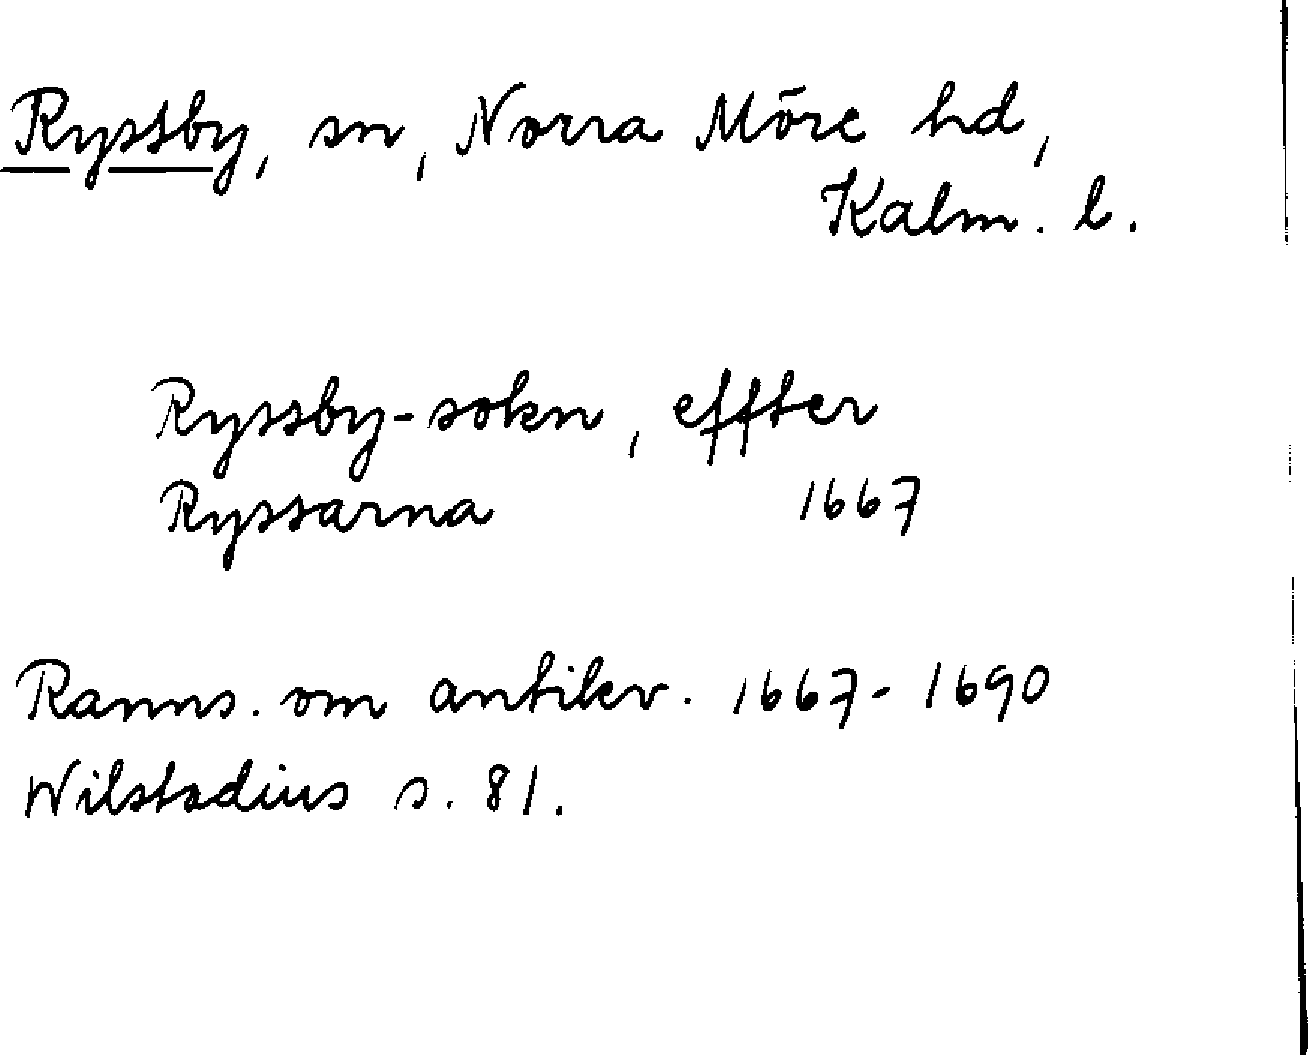 Ryssby, sn, Norra Möre hd,
Kalm. l.
Ryssby-sokn, effter
Ryssarna 1667
Ranns. om antikv. 1667-1690
Wilstadius s. 81.